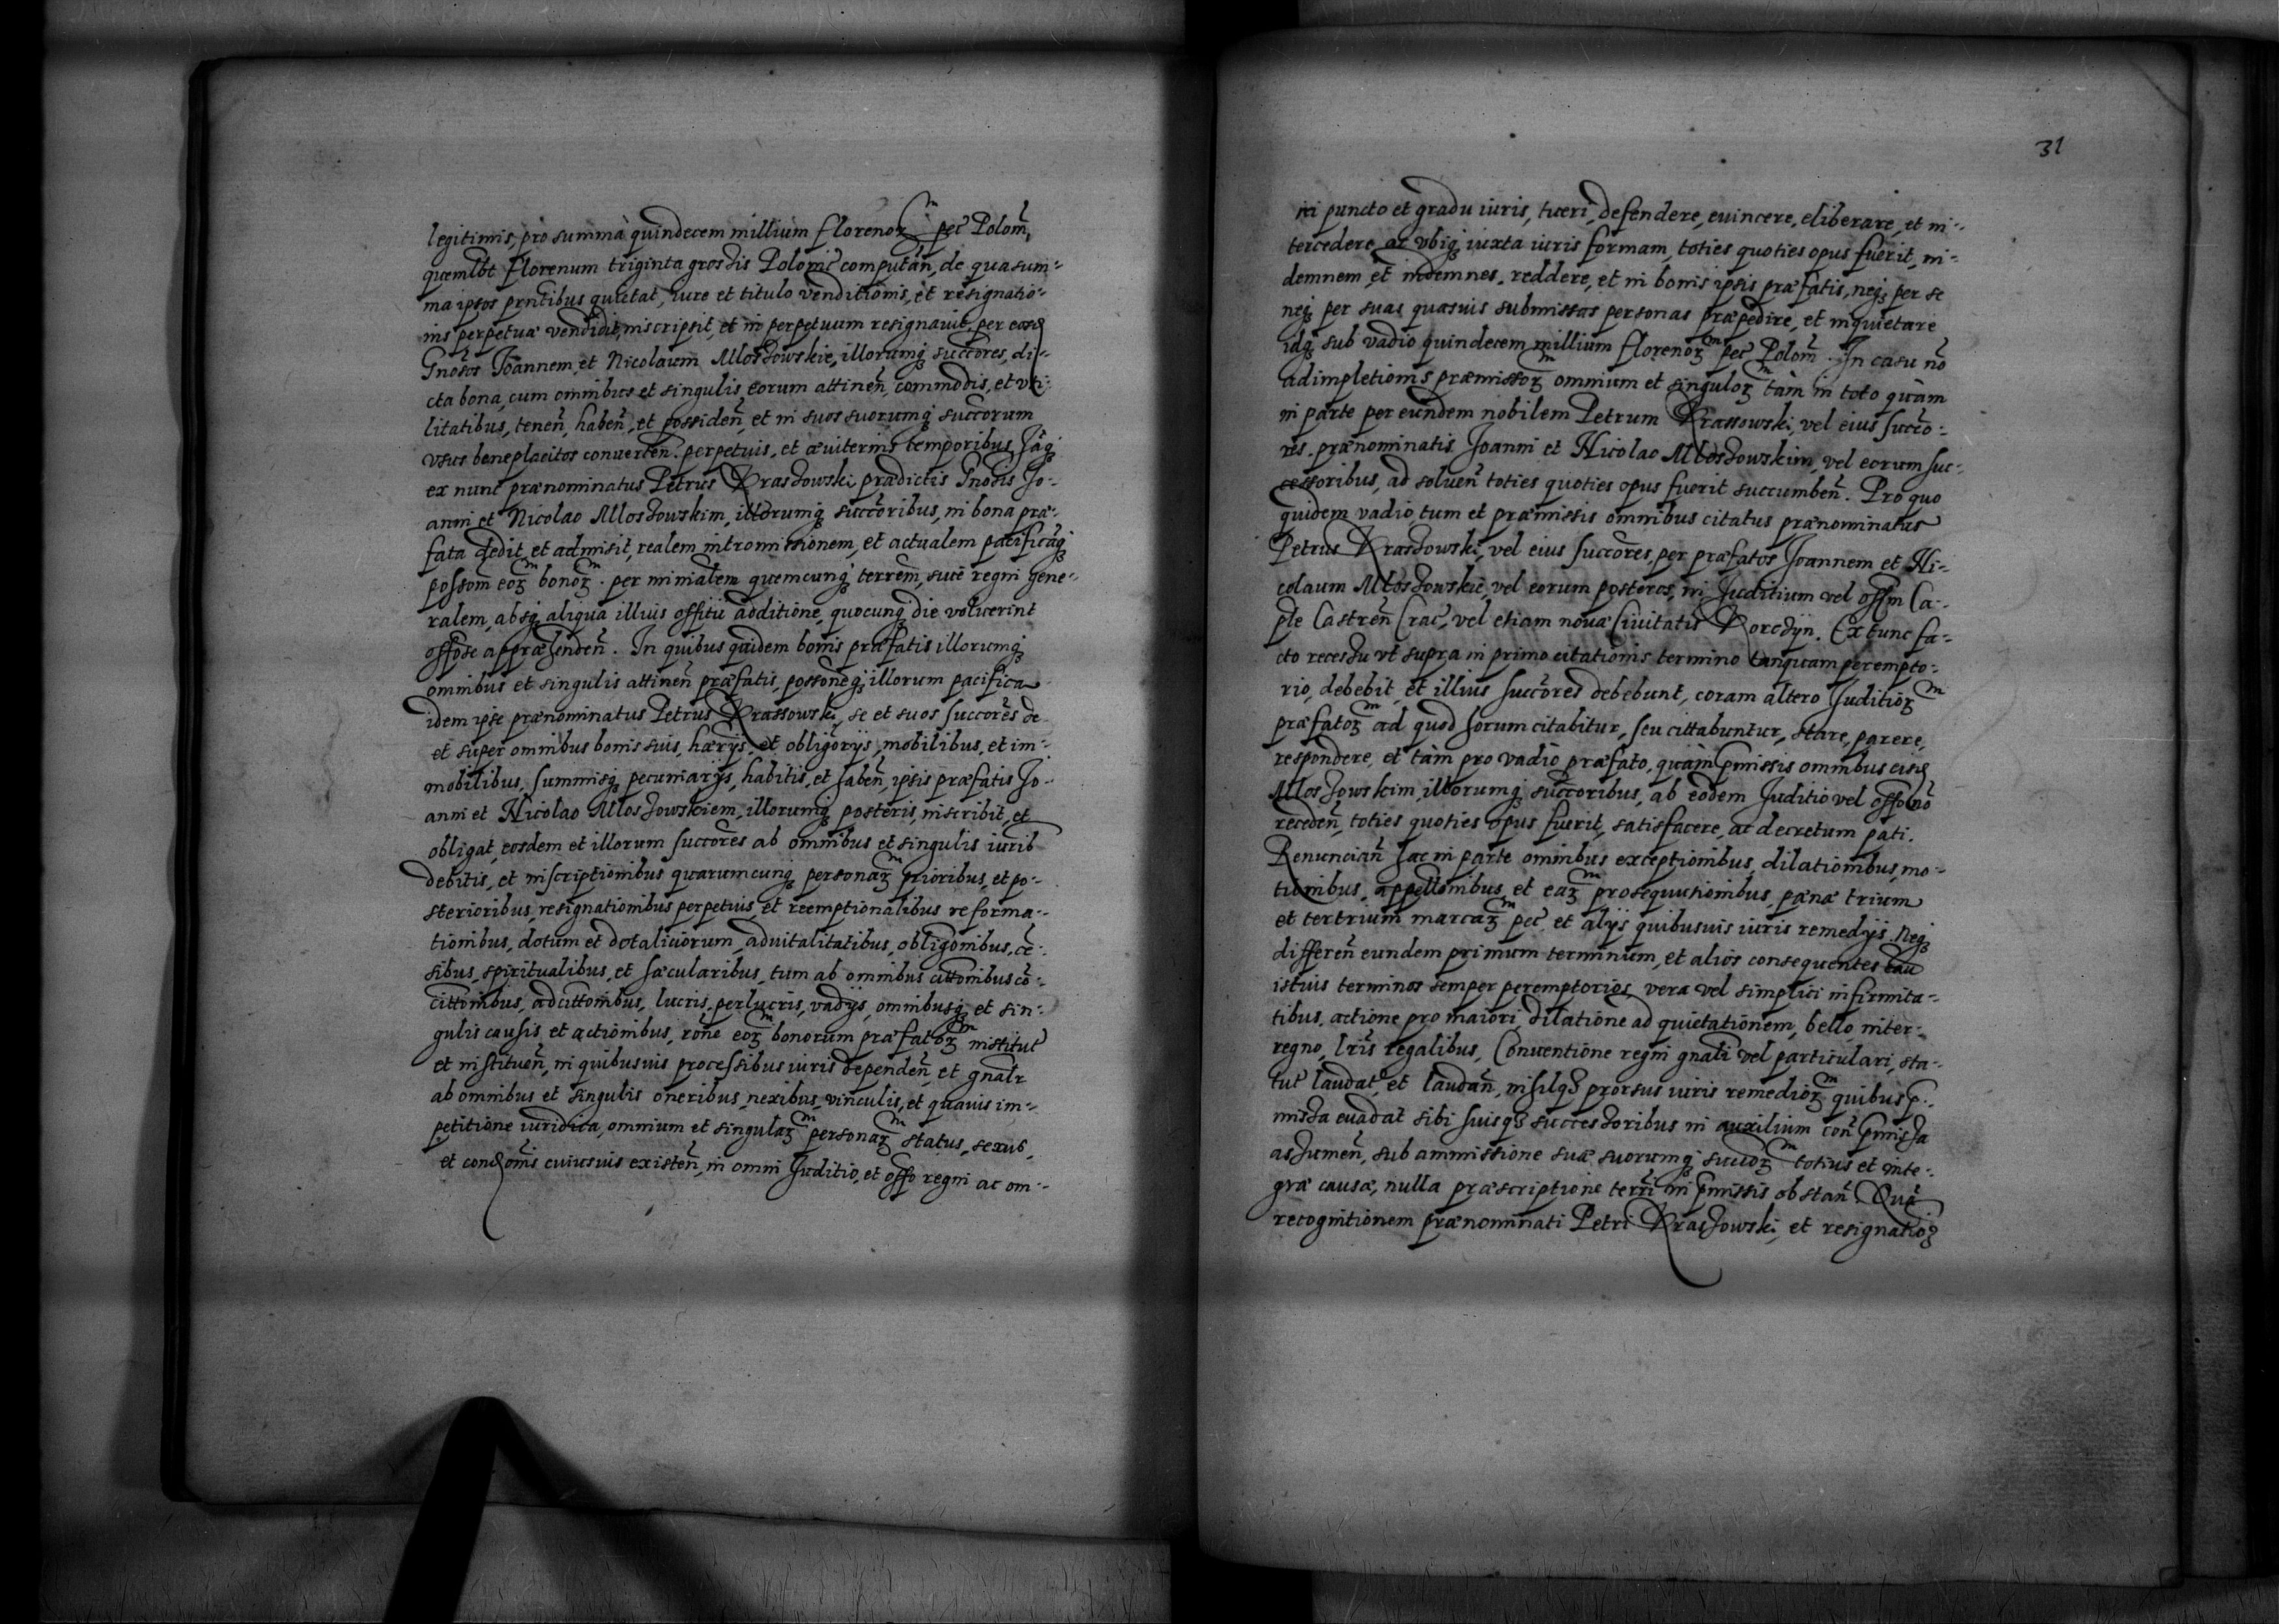 legitimis, pro summa quindecem millium florenoꝝ pec̃ Polom̃,
quemlbt florenum triginta grossis Polonic̃ computan̄, de qua sum-
ma ipsos prntibus quietat, iure et titulo venditionis, et resignatio-
nis perpetuæ vendidit, inscripsit, et in perpetuum resignauit. per eosd
Gnosos Joannem, et Nicolaum Mloshowskie, illorumq̃ succores, di-
cta bona, cum omnibus et singulis eorum attinen̄, commodis, et vti-
litatibus, tenen̄, haben̄, et possiden̄, et in suos suorumq̃ succorum
vsus beneplacitos conuerten̄. perpetuis, et æuiternis temporibus Jãq̃
ex nunc prænominatus Petrus Krashowski prædictis Gnosis Jo-
anni et Nicolao Mloshowskim, illorumq̃ succoribus, in bona præ-
fata dedit, et admisit, realem intromissionem, et actualem pacificãq̃
possom̃ eoꝝ bonoꝝ. per minialem quemcunq̃ terrem̃, siue regni gene-
ralem, absq̃ aliqua illius offitii additione, quocunq̃ die voluerint
offose appræhenden̄. In quibus quidem bonis præfatis illorumq̃
omnibus et singulis attinen̄ præfatis, possoneq̃ illorum pacifica
idem ipse prænominatus Petrus Krassowski, se et suos succores de
et super omnibus bonis suis, hærijs, et obligorijs, mobilibus, et im-
mobilibus, summisq̃ pecuniarijs, habitis, et haben̄, ipsis præfatis Jo-
anni et Nicolao Mloshowskiem, illorumq̃ posteris, inscribit, et
obligat, eosdem et illorum succores ab omnibus et singulis iurib
debitis, et inscriptionibus quarumcunq̃ personaꝝ prioribus, et po-
sterioribus, resignationibus perpetuis, et reemptionalibus reforma-
tionibus, dotum et dotaliciorum, aduitalitatibus, obligonibus, cẽ-
sibus, spiritualibus, et sæcularibus, tum ab omnibus cittonibus cõ-
cittonibus, adcittonibus, lucris, perlucris, vadijs, omnibusq̃ et sin-
gulis causis et actionibus, rone eoꝝ bonorum præfatoꝝ institut̃
et instituen̄, in quibusuis processibus iuris dependen̄, et gnalr
ab omnibus et singulis oneribus, nexibus, vinculis, et quauis im-
petitione iuridica, omnium et singulaꝝ personaꝝ status, sexus,
et condonis cuiusuis existen̄, in omni Juditio, et offo regni ac om-
31
ni puncto et gradu iuris, tueri, defendere, euincere, eliberare, et in-
tercedere, ac vbiq̃ iuxta iuris formam, toties quoties opus fuerit, in-
demnem, et indemnes. reddere, et in bonis ipsis præfatis, neq̃ per se
neq̃ per suas quasuis submissas personas præpedire, et inquietare
idq̃ sub vadio quindecem millium florenoꝝ pec̃ Polom̃. In casu nõ
adimpletionis præmissoꝝ omnium et singuloꝝ tàm in toto quàm
in parte per eundem nobilem Petrum Krassowski, vel eius succo-
res. prænominatis Joanni et Nicolao Mloshowskim, vel eorum suc-
cessoribus, ad soluen̄ toties quoties opus fuerit succumben̄. Pro quo
quidem vadio, tum et præmissis omnibus citatus prænominatus
Petrus Krashowski, vel eius succores, per præfatos Joannem et Ni-
colaum Mloshowskie, vel eorum posteros, in Juditium vel offm Ca-
ple Castren̄ Crac̃, vel etiam nouæ Ciuitatis Korczijn. Ex tunc fa-
cto recessu vt supra in primo citationis termino tanquam perempto-
rio, debebit, et illius succores debebunt, coram altero Juditioꝝ
præfatoꝝ ad quod horum citabitur, seu cittabuntur, stare, parere,
respondere, et tàm pro vadio præfato, quàm p̃missis omnibus eisd
Mloshowskim, illorumq̃ succoribus, ab eodem Juditio vel offo nõ
receden̄, toties quoties opus fuerit, satisfacere, ac decretum pati.
Renuncian̄ hac in parte omnibus exceptionibus, dilationibus, mo-
tionibus, appellonibus, et eaꝝ prosequutionibus, pænæ trium
et tertrium marcaꝝ pec̃, et alijs quibusuis iuris remedijs. Neq̃
differen̄ eundem primum terminum, et alios consequentes cau
istius terminos semper peremptorios, vera vel simplici infirmita-
tibus, actione pro maiori, dilatione ad quietationem, bello inter-
regno, lris regalibus, Conuentione regni gnali vel particulari, sta-
tut̃ laudat̃, et laudan̄, nihilq̃ prorsus iuris remedioꝝ quibus p̃-
missa euadat sibi suisq̃ successoribus in auxilium con̄ p̃missa
assumen̄, sub ammissione suæ suorumq̃ succoꝝ totius et inte-
græ causæ, nulla præscriptione terri in p̃missis obstan̄. Quã
recognitionem prænominati Petri Krashowski, et resignatioꝫ